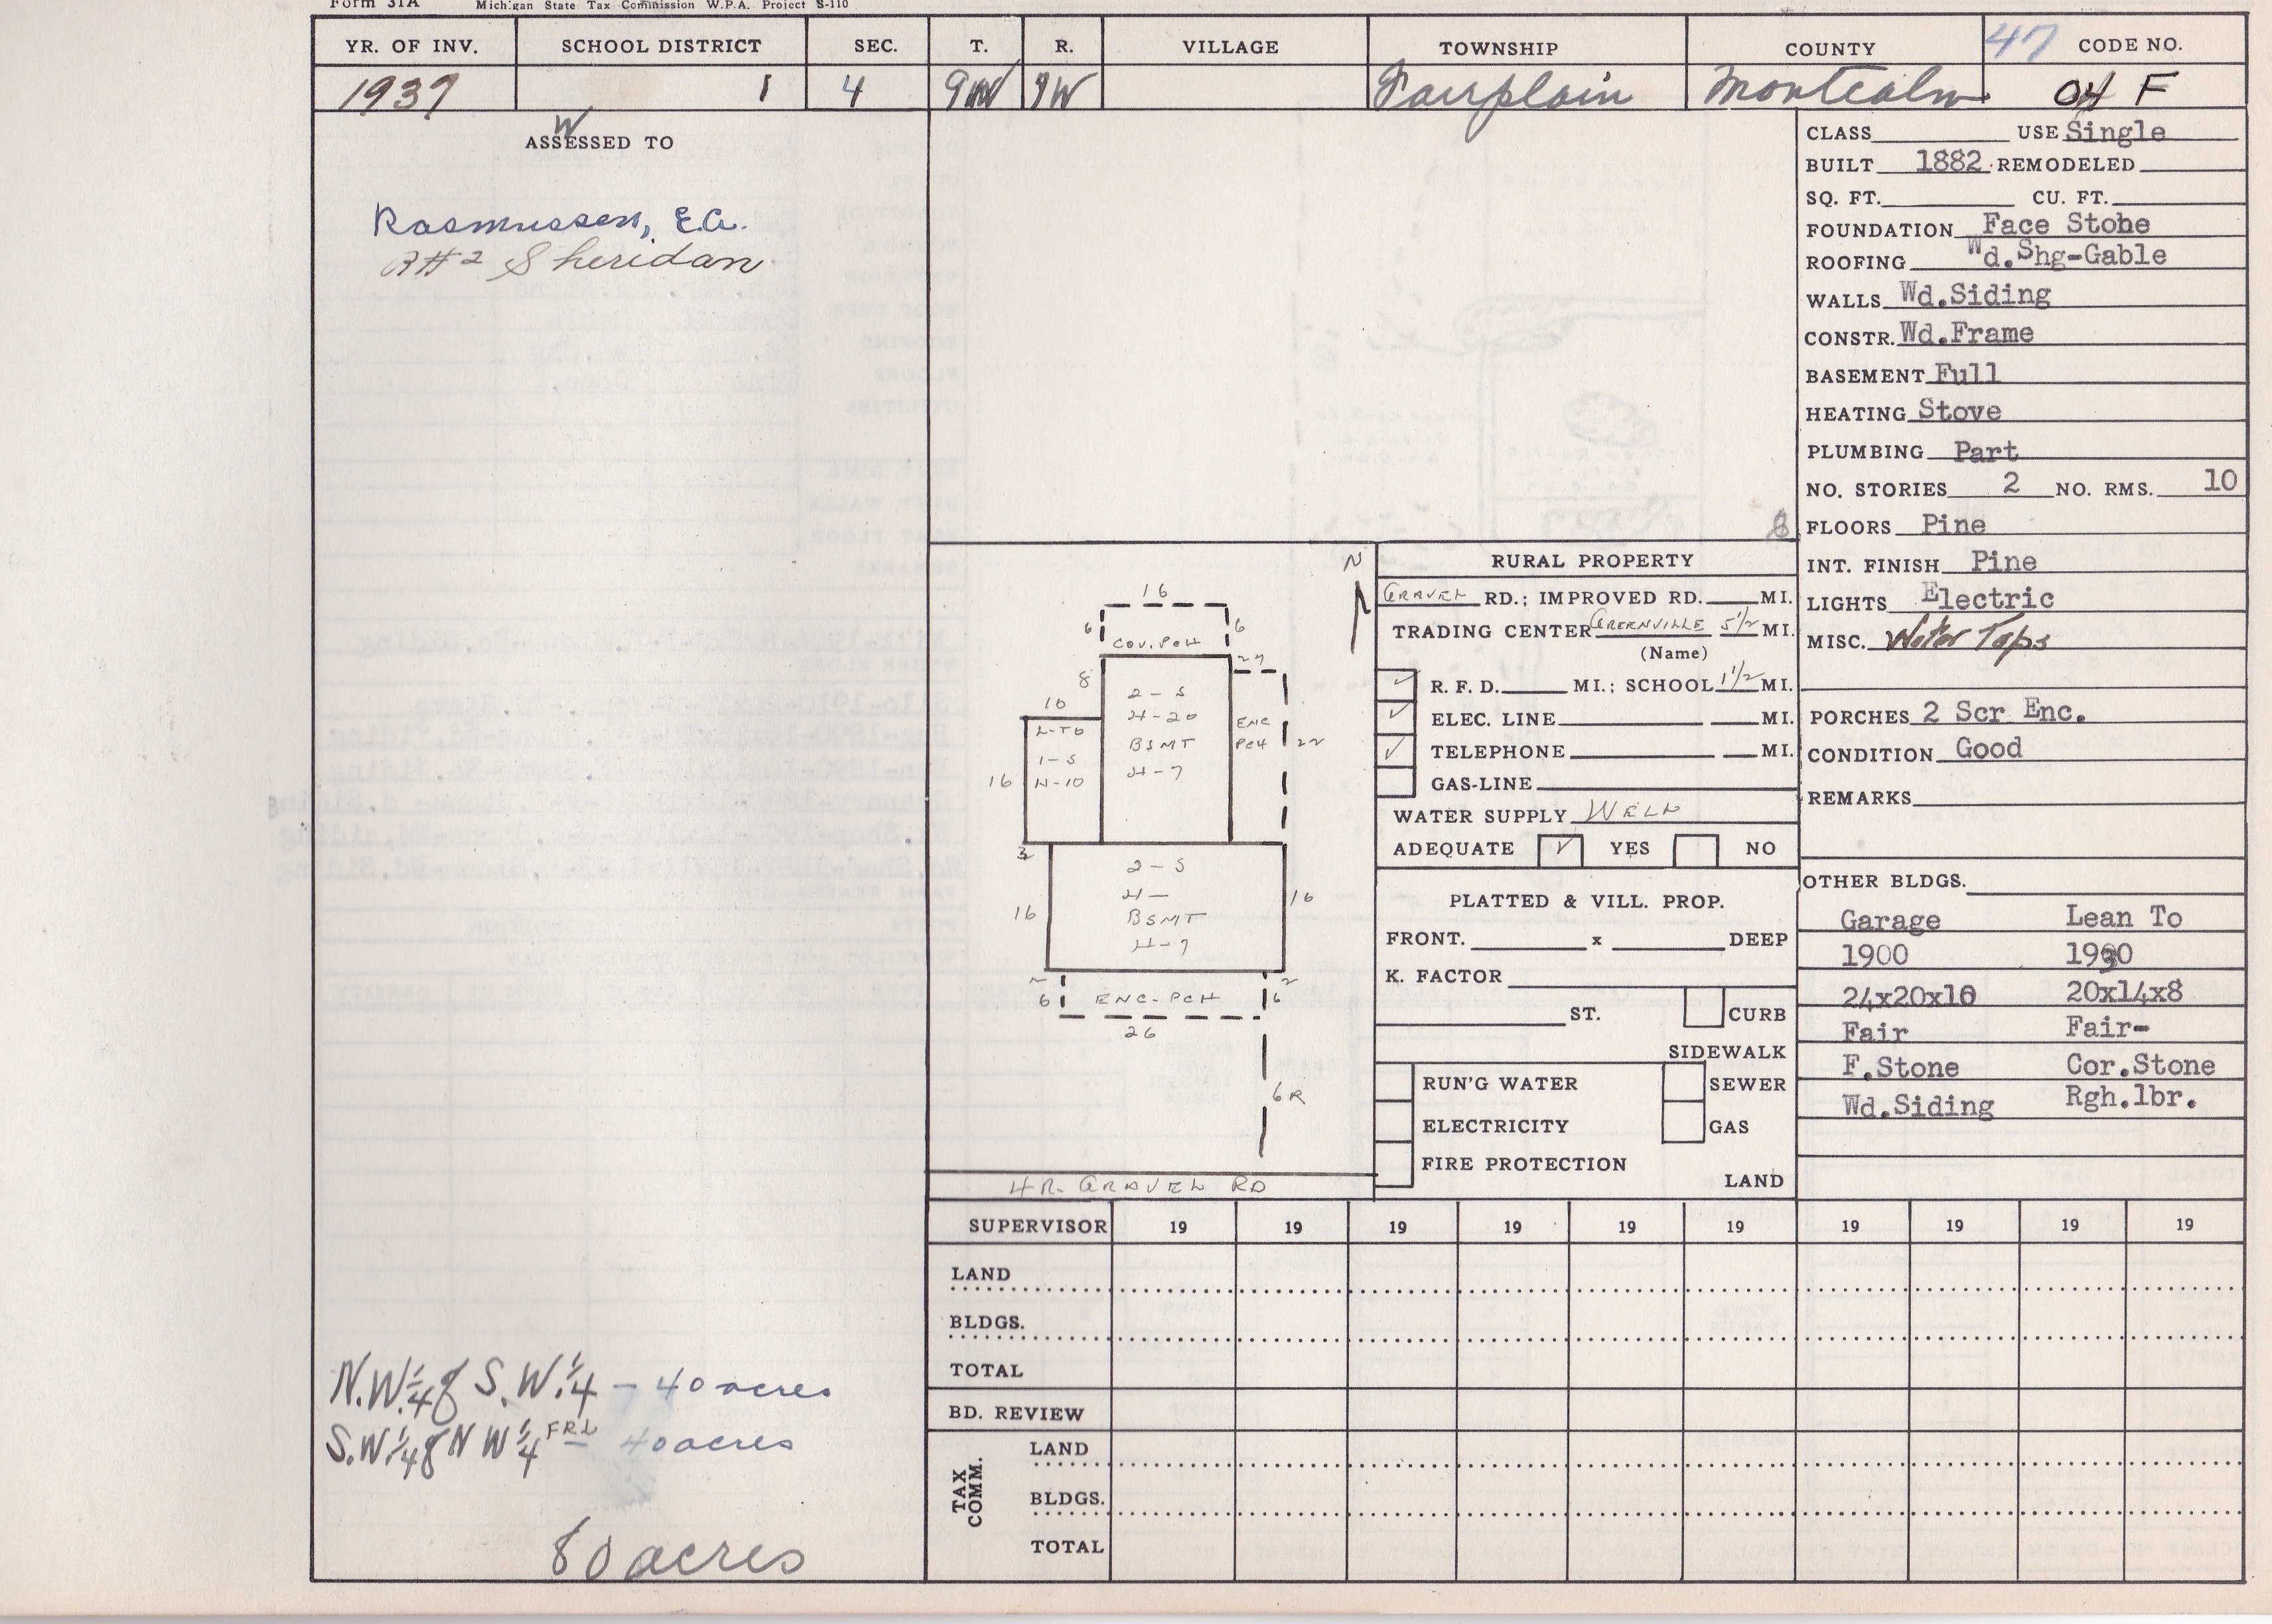 Form 31A Michigan State Tax Commission W.P.A. Project S-110
YR. OF INV. SCHOOL DISTRICT SEC. T. R. VILLAGE TOWNSHIP COUNTY 47 CODE NO.
1937 1 4 9N 7W Fairplain Montcalm 04 F
W
ASSESSED TO
Rasmussen, E.A.
R#2 Sheridan
N.W.1/4 of S.W.1/4 - 40 acres
S.W.1/4 of N W 1/4 FRL - 40 acres
80 acres
N
16
6 6
COV. PCH
27
8
10
2-S
H-20
BSMT
H-7
ENC
PCH
22
L-TO
1-S
H-10
16
3
2-S
H-
BSMT
H-7
16 16
2 2
6 ENC-PCH 6
26
6R
4R. GRAVEL RD
RURAL PROPERTY
GRAVEL RD.; IMPROVED RD. MI.
TRADING CENTER GREENVILLE 5 1/2 MI.
(Name)
✓ R. F. D. MI.; SCHOOL 1 1/2 MI.
✓ ELEC. LINE MI.
✓ TELEPHONE MI.
GAS-LINE
WATER SUPPLY WELL
ADEQUATE ✓ YES NO
PLATTED & VILL. PROP.
FRONT. x DEEP
K. FACTOR
ST. CURB
SIDEWALK
RUN'G WATER SEWER
ELECTRICITY GAS
FIRE PROTECTION
LAND
8
CLASS USE Single
BUILT 1882 REMODELED
SQ. FT. CU. FT.
FOUNDATION Face Stone
ROOFING Wd.Shg-Gable
WALLS Wd.Siding
CONSTR. Wd.Frame
BASEMENT Full
HEATING Stove
PLUMBING Part
NO. STORIES 2 NO. RMS. 10
FLOORS Pine
INT. FINISH Pine
LIGHTS Electric
MISC. Water Taps
PORCHES 2 Scr Enc.
CONDITION Good
REMARKS
OTHER BLDGS.
Garage Lean To
1900 1930
24x20x16 20x14x8
Fair Fair-
F.Stone Cor.Stone
Wd.Siding Rgh.lbr.
SUPERVISOR 19 19 19 19 19 19 19 19 19 19
LAND
BLDGS.
TOTAL
BD. REVIEW
TAX COMM.
LAND
BLDGS.
TOTAL